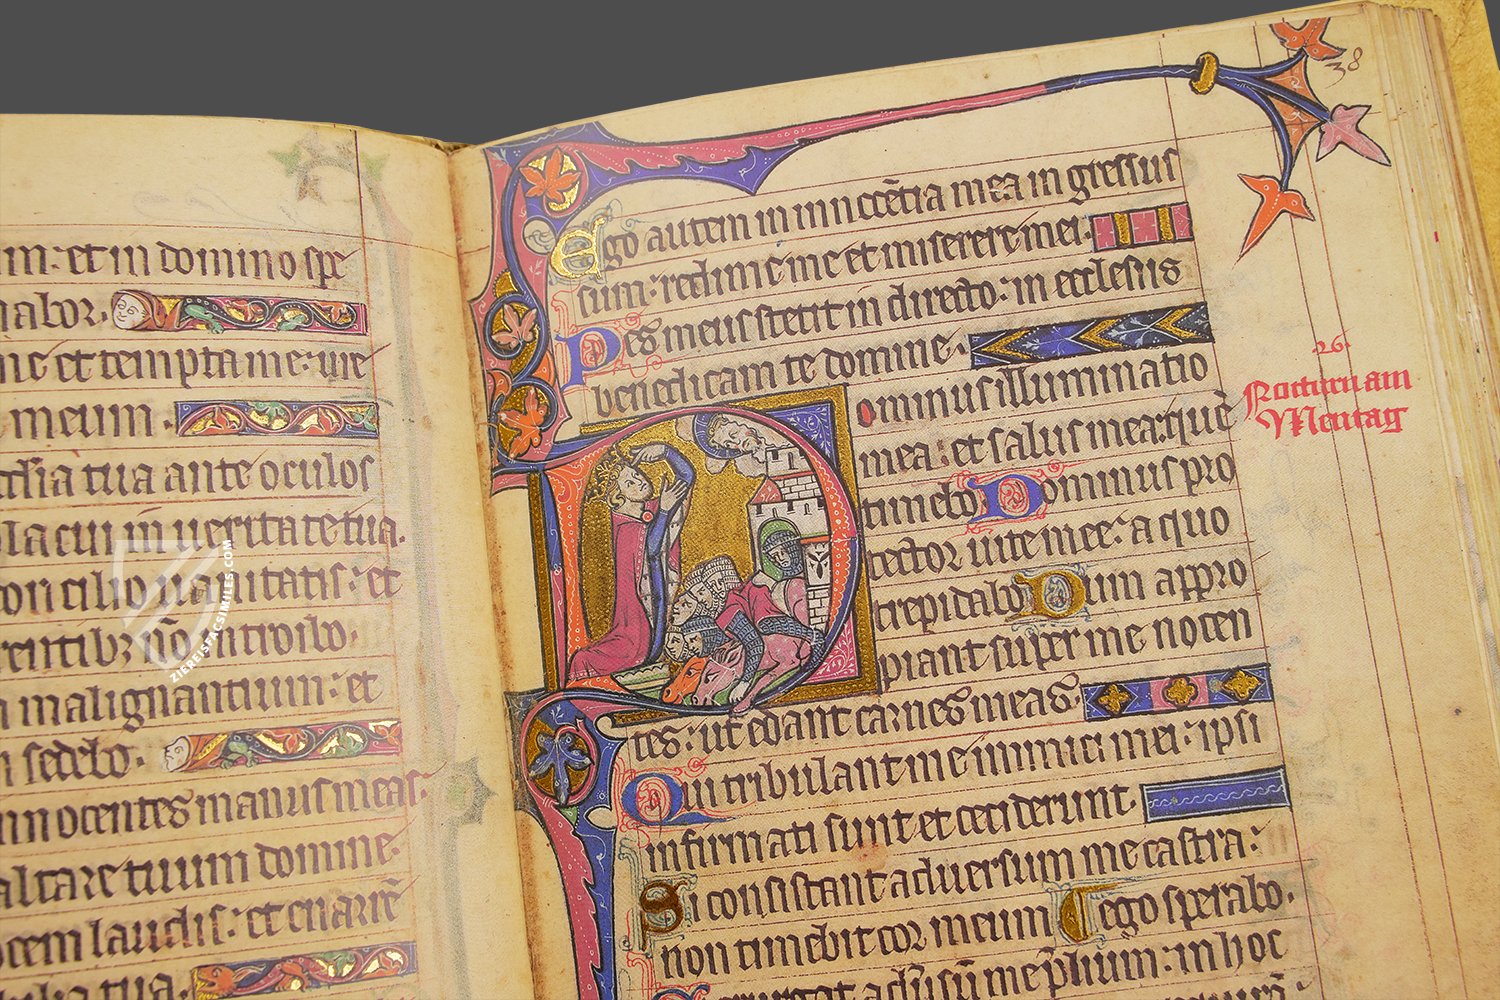 um: et in domino spe
rabor.
me et tempta me: ure
meum.
cordia tua ante oculos
placui in ueritate tua.
concilio uanitatis: et
rentibȝ nō introibo.
malignantium: et
sedebo.
innocentes manus meas:
altare tuum domine.
uocem laudis: et enarrē
tua.
38
Ego autem in innocētia mea ingressus
sum: redime me et miserere mei.
Pes meus stetit in directo: in ecclesiis
benedicam te domine.
Dominus illuminatio
mea: et salus mea: quē
timebo Dominus pro
tector uite mee: a quo
trepidabo Dum appro
piant super me nocen
tes: ut edant carnes meas.
Qui tribulant me inimici mei: ipsi
infirmati sunt et ceciderunt.
Si consistant aduersum me castra:
non timebit cor meum
ego sperabo.
in hoc
.26.
Nocturn am
Mentag
ZIEREISFACSIMILES.COM